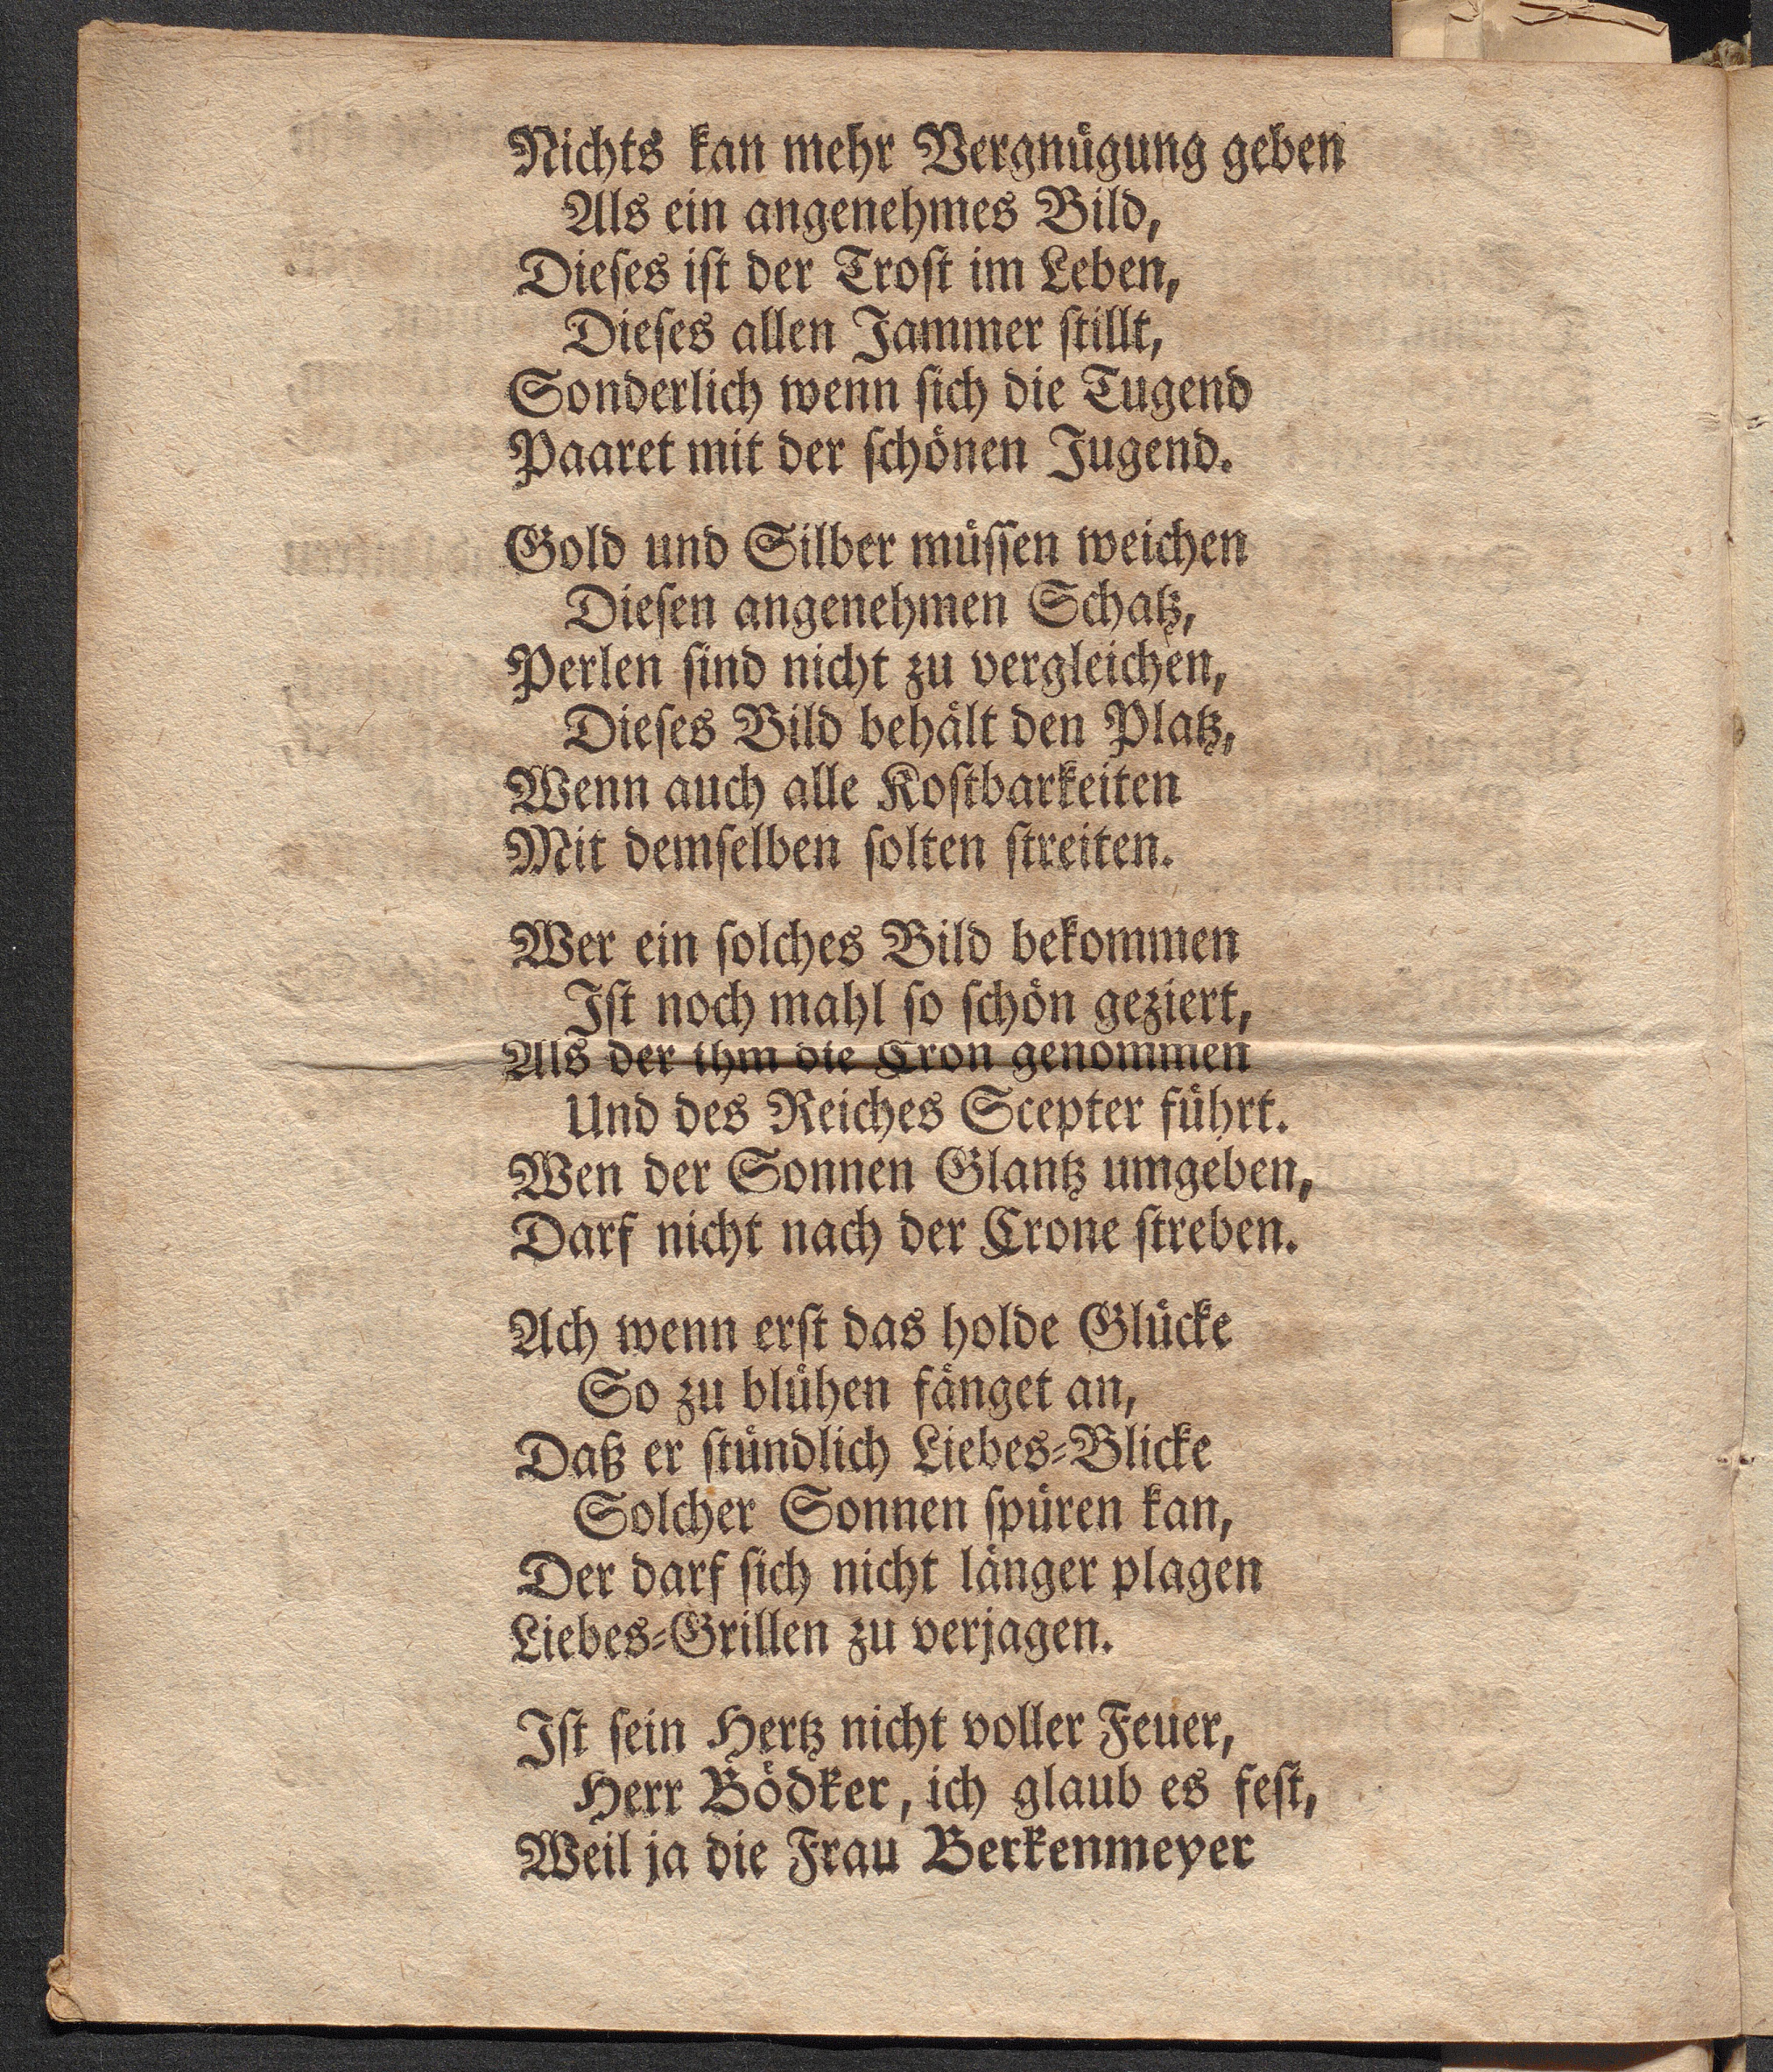 Nichts kan mehr Vergnuͤgung geben
Als ein angenehmes Bild,
Dieſes iſt der Troſt im Leben,
Dieſes allen Jammer ſtillt,
Sonderlich wenn ſich die Tugend
Paaret mit der ſchoͤnen Jugend.
Gold und Silber muͤſſen weichen
Dieſen angenehmen Schatz,
Perlen ſind nicht zu vergleichen,
Dieſes Bild behaͤlt den Platz,
Wenn auch alle Koſtbarkeiten
Mit demſelben ſolten ſtreiten.
Wer ein ſolches Bild bekommen
Iſt noch mahl ſo ſchoͤn geziert,
Als der ihm die Cron genommen
Und des Reiches Scepter fuͤhrt.
Wen der Sonnen Glantz umgeben,
Darf nicht nach der Crone ſtreben.
Ach wenn erſt das holde Gluͤcke
So zu bluͤhen faͤnget an,
Daß er ſtuͤndlich Liebes-Blicke
Solcher Sonnen ſpuͤren kan,
Der darf ſich nicht laͤnger plagen
Liebes-Grillen zu verjagen.
Iſt ſein Hertz nicht voller Feuer,
Herr Boͤdker, ich glaub es feſt,
Weil ja die Frau Berkenmeyer